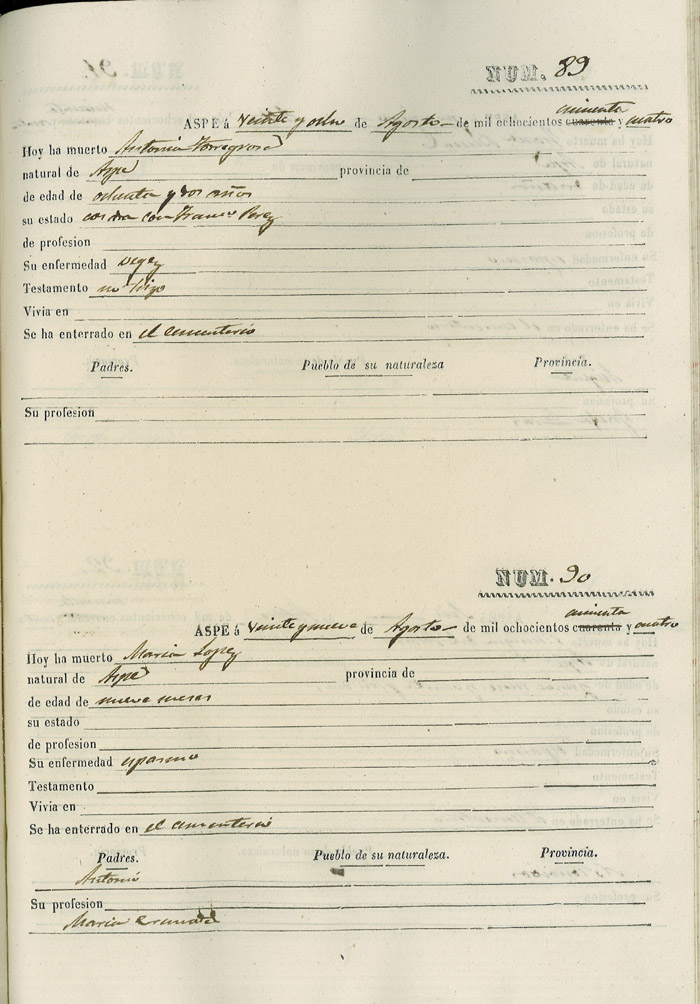 NUM. 89
cincuenta
ASPE á veinte y ocho de Agosto de mil ochocientos cuarenta y cuatro
Hoy ha muerto Antonia Torregrosa
natural de Aspe provincia de
de edad de ochenta y dos años
su estado casada con Franco Perez
de profesion
Su enfermedad vegez
Testamento no hizo
Vivia en
Se ha enterrado en el cementerio
Padres. Pueblo de su naturaleza Provincia.
Su profesion
NUM. 90
cincuenta
ASPE á veinte y nueve de Agosto de mil ochocientos cuarenta y cuatro
Hoy ha muerto Maria Lopez
natural de Aspe provincia de
de edad de nueve meses
su estado
de profesion
Su enfermedad espasmo
Testamento
Vivia en
Se ha enterrado en el cementerio
Padres. Pueblo de su naturaleza. Provincia.
Antonio
Su profesion
Maria